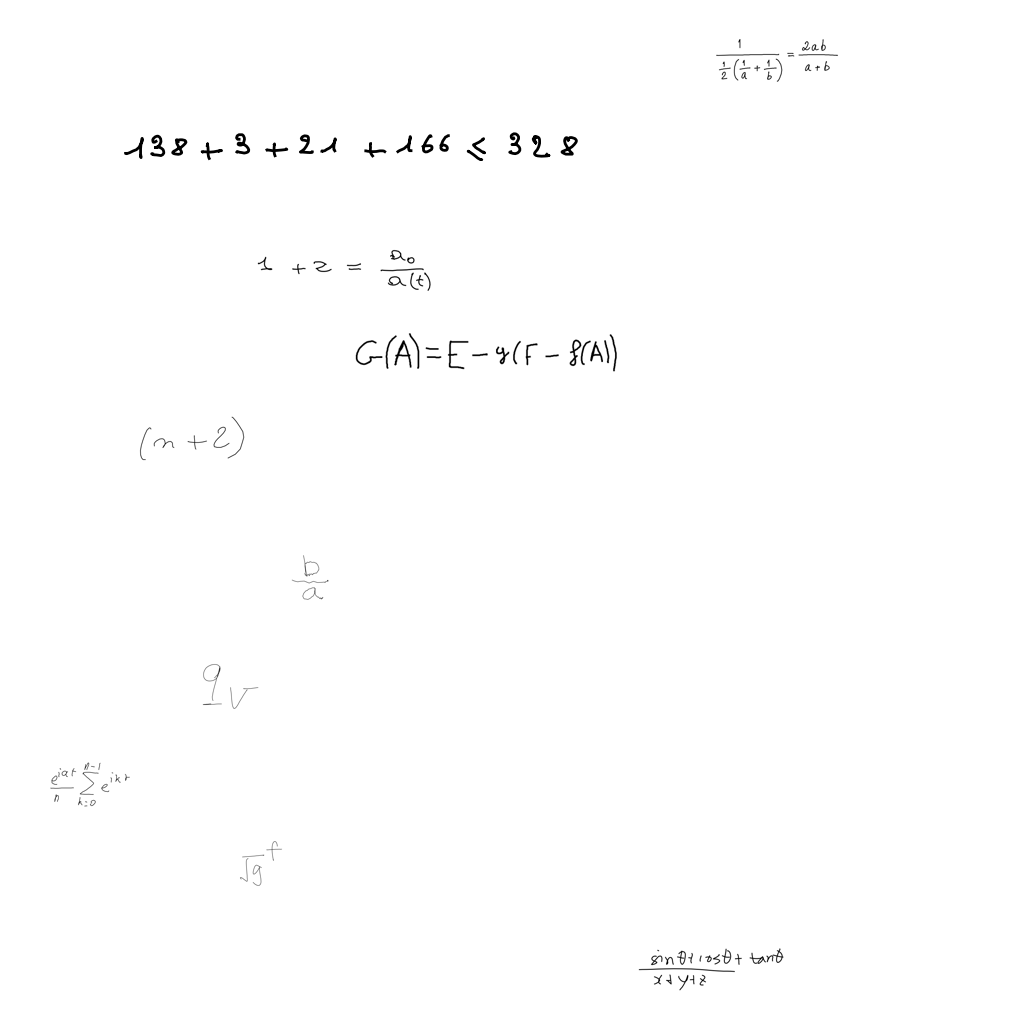 \frac{1}{\frac{1}{2}(\frac{1}{a}+\frac{1}{b})}=\frac{2ab}{a+b}
138+3+21+166\leq328
1+z=\frac{a_0}{a(t)}
G(A)=E-g(F-f(A))
(n+2)
\frac{b}{a}
q_v
\frac{e^{iat}}{n}\sum_{k=0}^{n-1}e^{ikt}
\sqrt{g}^f
\frac{sin\theta+cos\theta+tan\theta}{x+y+z}